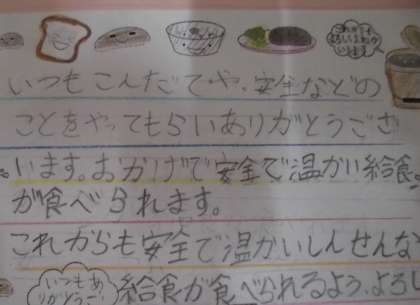 これからも
よろしくおねがい
します
いつもこんだてや、安全などの
ことをやってもらいありがとうござ
います。おかげで安全で温かい給食
が食べられます。
これからも安全で温かいしんせんな
給食が食べられるよう、よろし
いつもあ
りがとう